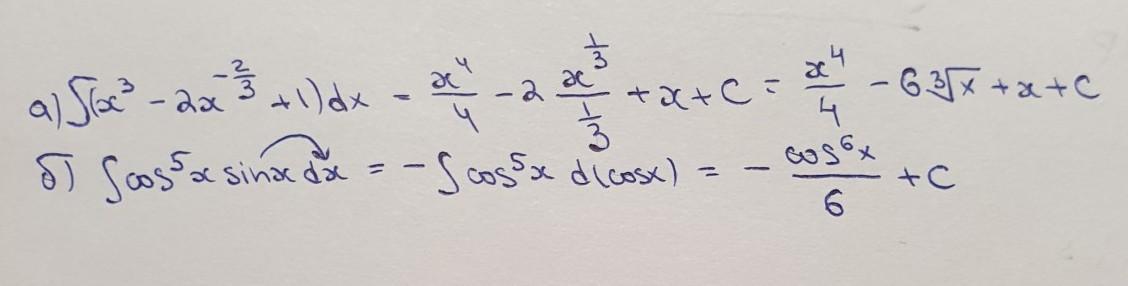 а) ∫(x³ - 2x^(-2/3) + 1)dx = x⁴/4 - 2 x^(1/3)/(1/3) + x + C = x⁴/4 - 6∛x + x + C
б) ∫cos⁵x sinx dx = -∫cos⁵x d(cosx) = - cos⁶x/6 + C